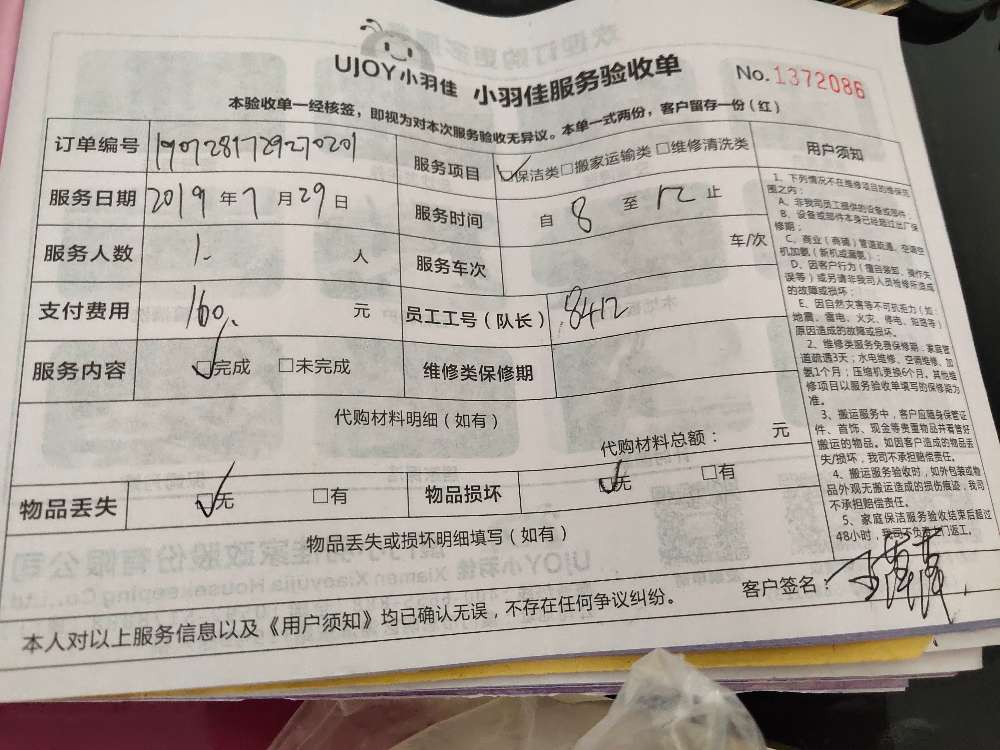 UJOY小羽佳 小羽佳服务验收单 No.1372086
本验收单一经核签，即视为对本次服务验收无异议。本单一式两份，客户留存一份（红）
订单编号 1907281729270201 服务项目 保洁类 □搬家运输类 □维修清洗类
服务日期 2019年7月29日 服务时间 自 8 至 12 止
服务人数 1. 人 服务车次 车/次
支付费用 160. 元 员工工号（队长） 8412
服务内容 完成 □未完成 维修类保修期
代购材料明细（如有）
代购材料总额： 元
物品丢失 无 □有 物品损坏 无 □有
物品丢失或损坏明细填写（如有）
客户签名：
本人对以上服务信息以及《用户须知》均已确认无误，不存在任何争议纠纷。
用户须知
1、下列情况不在维修项目的维保范
围之内：
A、非我司员工提供的设备或部件；
B、设备或部件本身已经超过出厂保
修期；
C、商业（商铺）管道疏通、空调空
机加氨（新机或漏氨）；
D、因客户行为（擅自装卸、操作失
误等）或另请非我司人员维修所造成
的故障或损坏；
E、因自然灾害等不可抗拒力（如：
地震、雷电、火灾、停电、短路等）
原因造成的故障或损坏。
2、维修类服务免费保修期：家庭管
道疏通3天；水电维修、空调维修、加
氨1个月；压缩机更换6个月。其他维
修项目以服务验收单填写的保修期为
准。
3、搬运服务中，客户应随身保管证
件、首饰、现金等贵重物品并看管好
搬运的物品。如因客户造成的物品丢
失/损坏，我司不承担赔偿责任。
4、搬运服务验收时，如外包装或物
品外观无搬运造成的损伤痕迹，我司
不承担赔偿责任。
5、家庭保洁服务验收结束后超过
48小时，我司不负责上门返工。